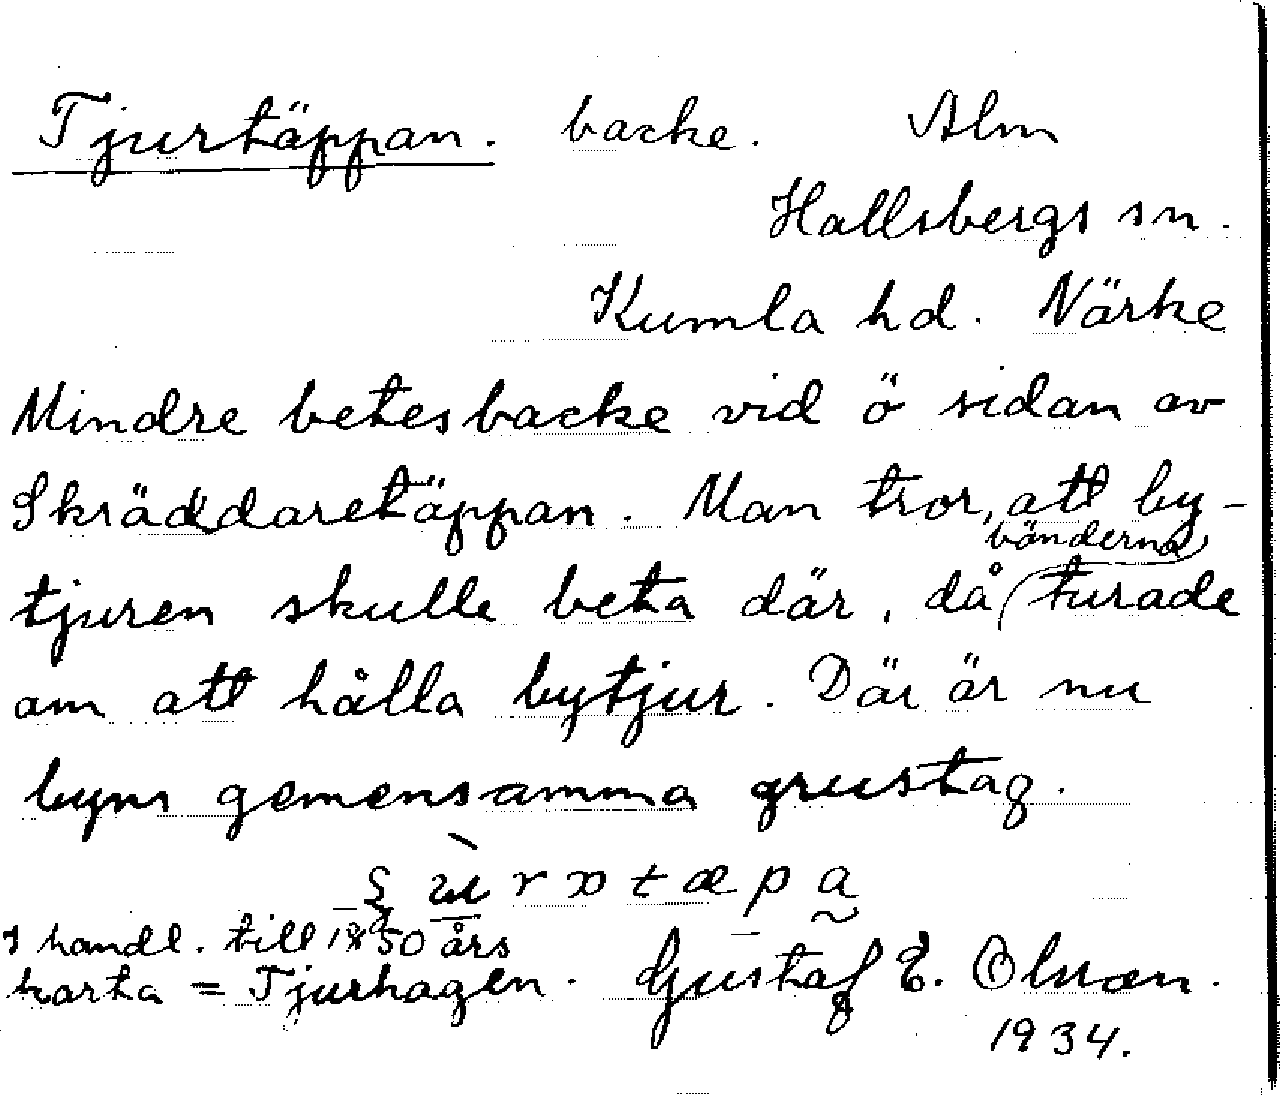 Tjurtäppan. backe. Alm
Hallsbergs sn.
Kumla hd. Närke
Mindre betesbacke vid ö sidan av
Skräddaretäppan. Man tror, att by-
bänderna
tjuren skulle beta där, då turade
om att hålla bytjur. Där är nu
byns gemensamma grustag.
I handl. till 1850 års
karta = Tjurhagen. Gustaf E. Olsson.
1934.